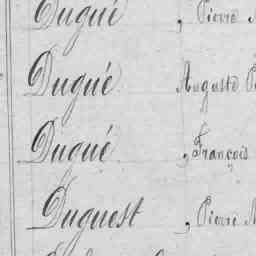 Dugué, Pierre
Dugué. Auguste
Dugué, François
Duguest, Pierre